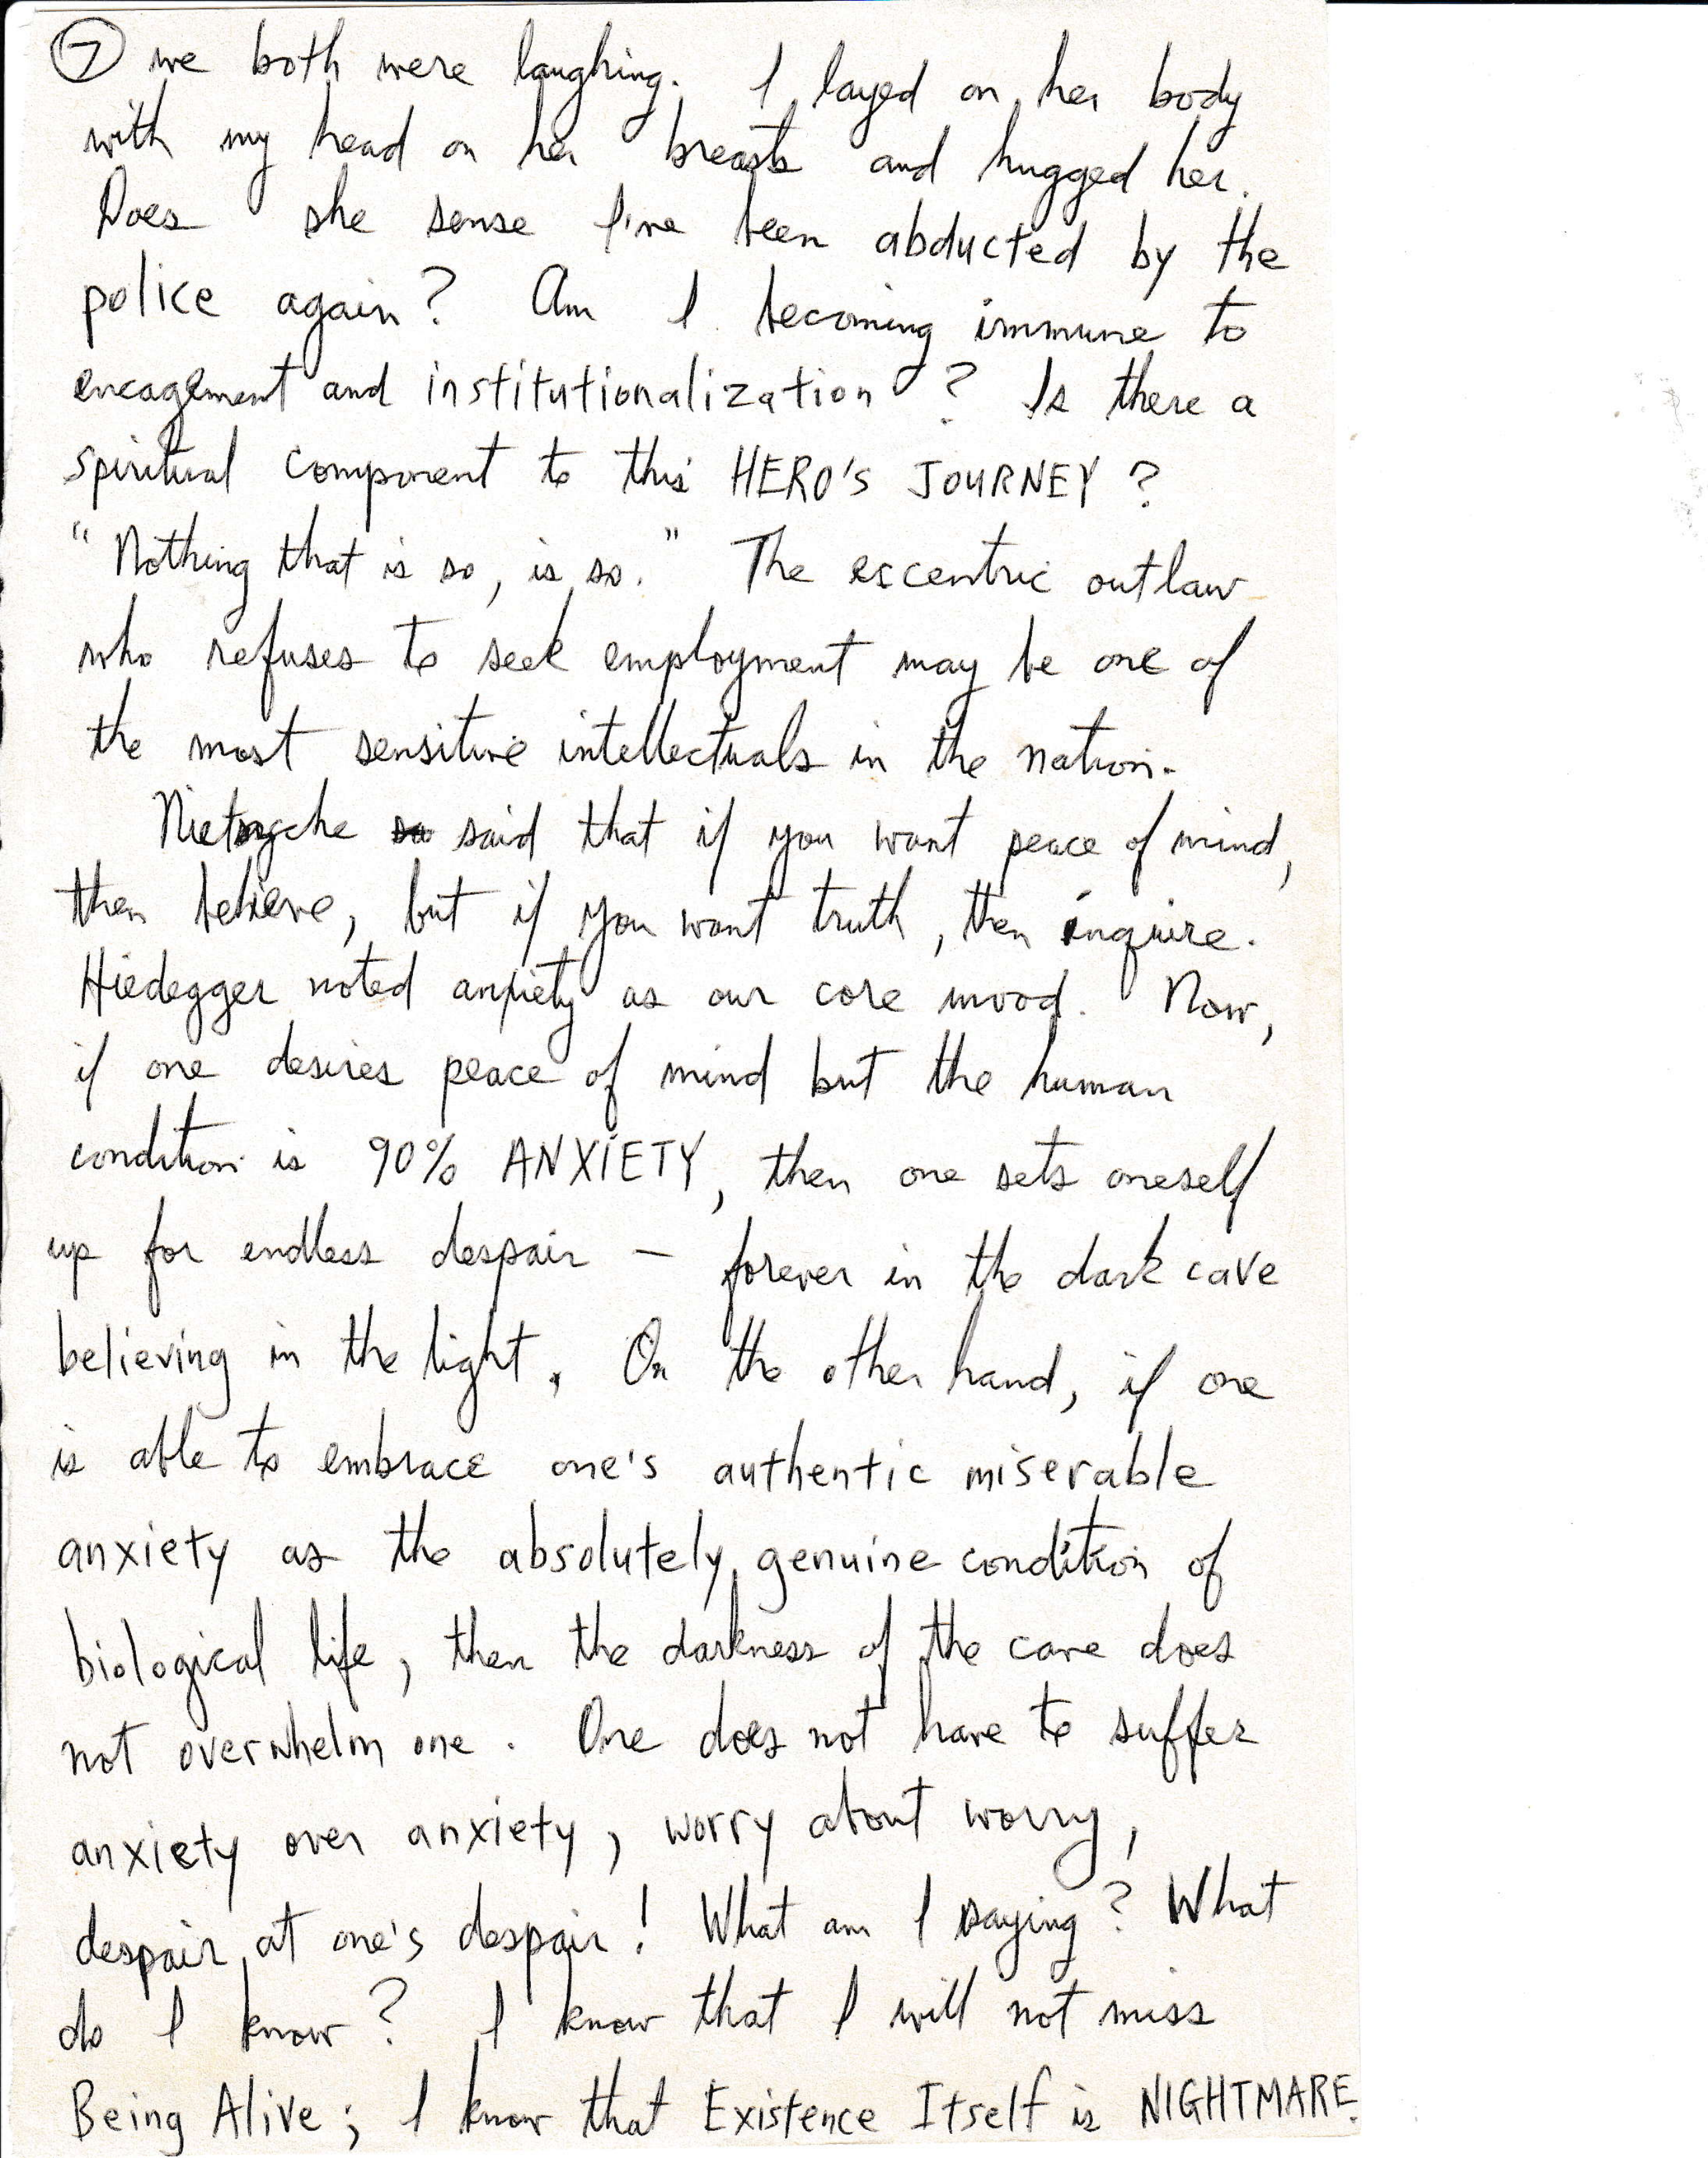 ⑦ we both were laughing. I layed on her body
with my head on her breasts and hugged her.
Does she sense I've been abducted by the
police again? Am I becoming immune to
encagement and institutionalization? Is there a
spiritual component to this HERO'S JOURNEY?
"Nothing that is so, is so." The escentric outlaw
who refuses to seek employment may be one of
the most sensitive intellectuals in the nation.
Nietzsche said that if you want peace of mind,
then believe, but if you want truth, then inquire.
Hiedegger noted anxiety as our core mood. Now,
if one desires peace of mind but the human
condition is 90% ANXIETY, then one sets oneself
up for endless despair — forever in the dark cave
believing in the light. On the other hand, if one
is able to embrace one's authentic miserable
anxiety as the absolutely genuine condition of
biological life, then the darkness of the cave does
not overwhelm one. One does not have to suffer
anxiety over anxiety, worry about worry,
despair at one's despair! What am I saying? What
do I know? I know that I will not miss
Being Alive; I know that Existence Itself is NIGHTMARE.